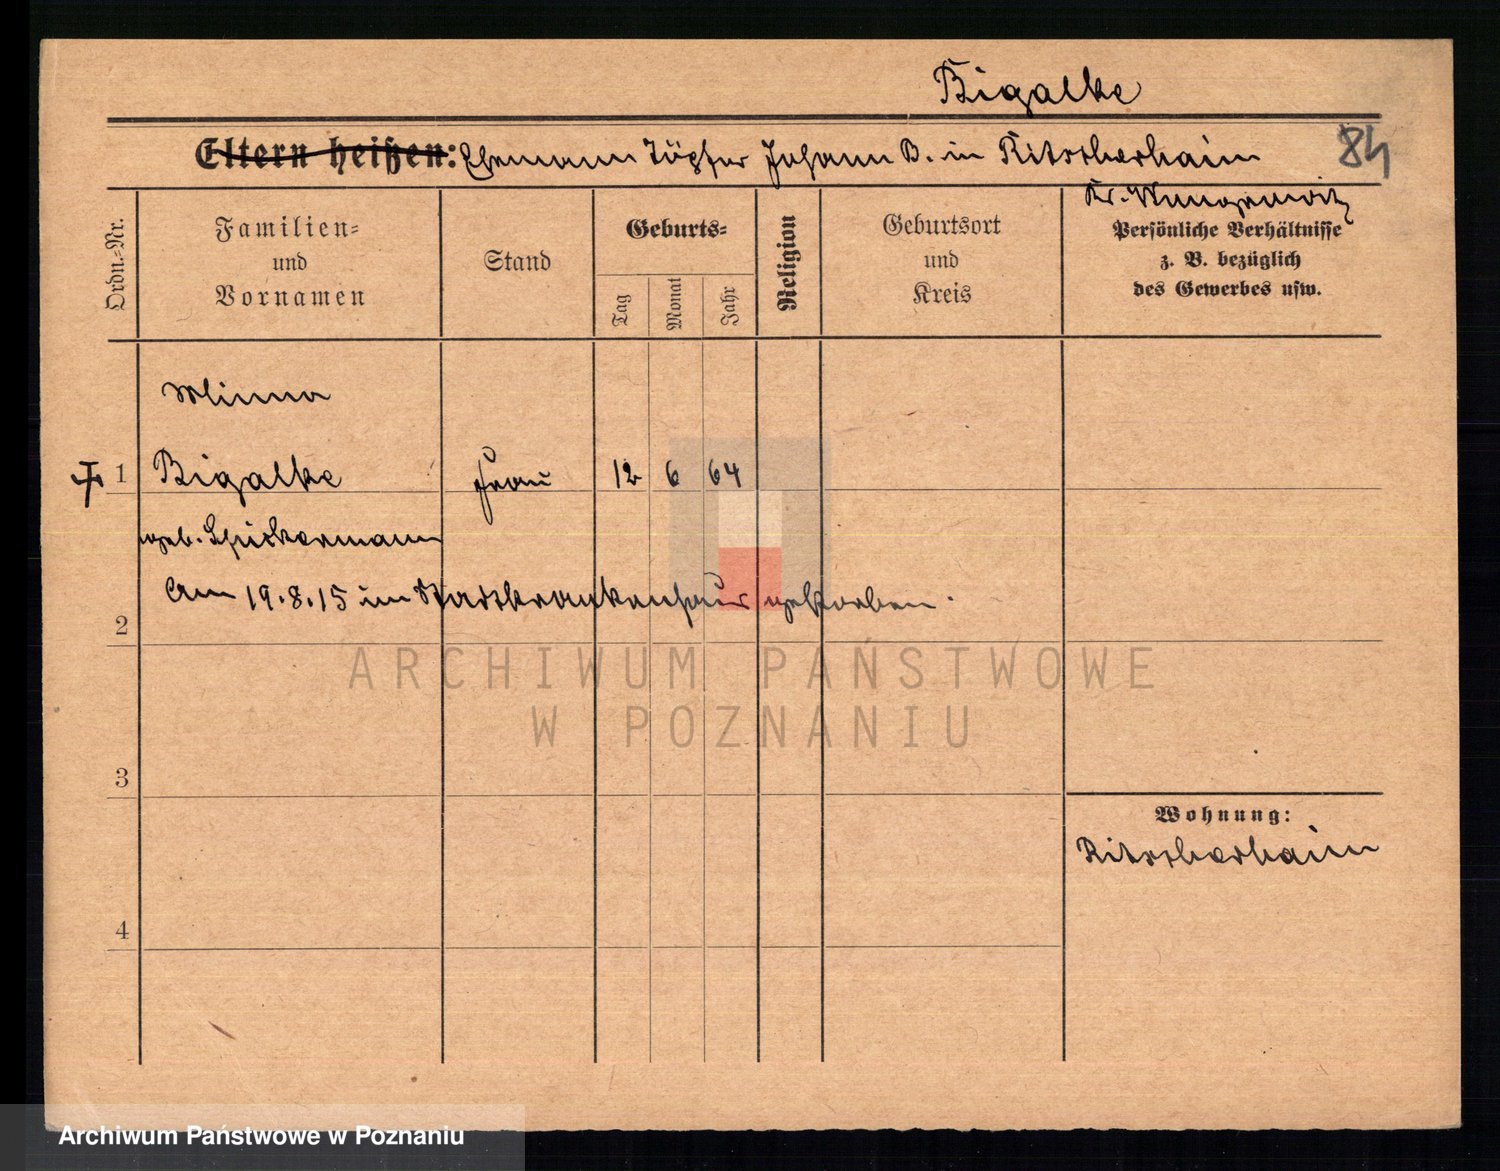 Bigalke
Eltern heißen: Ehemann Töpfer Johann B. in Ritschenhain
84
Kr.
Ordn.-Nr.
Familien-
und
Vornamen
Stand
Geburts-
Tag
Monat
Jahr
Religion
Geburtsort
und
Kreis
Persönliche Verhältnisse
z. B. bezüglich
des Gewerbes usw.
Minna
1 Bigalke Frau 12 6 64
geb. Spickermann
Am 19.8.15 im Stadtkrankenhaus gestorben.
2
ARCHIWUM PAŃSTWOWE
W POZNANIU
3
Wohnung:
Ritschenhain
4
Archiwum Państwowe w Poznaniu